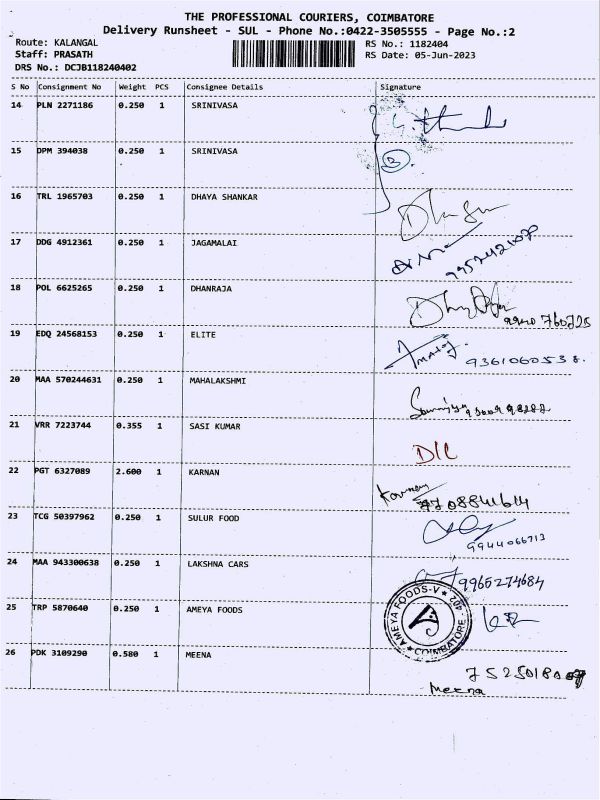 THE PROFESSIONAL COURIERS, COIMBATORE
Delivery Runsheet - SUL - Phone No.:0422-3505555 - Page No.:2
Route: KALANGAL
RS No.: 1182404
Staff: PRASATH
RS Date: 05-Jun-2023
DRS No.: DCJB118240402
S No Consignment No Weight PCS Consignee Details Signature
14 PLN 2271186 0.250 1 SRINIVASA
15 DPM 394038 0.250 1 SRINIVASA 3
16 TRL 1965703 0.250 1 DHAYA SHANKAR
17 DDG 4912361 0.250 1 JAGAMALAI
18 POL 6625265 0.250 1 DHANRAJA
19 EDQ 24568153 0.250 1 ELITE
9361060538.
20 MAA 570244631 0.250 1 MAHALAKSHMI
21 VRR 7223744 0.355 1 SASI KUMAR
D/L
22 PGT 6327089 2.600 1 KARNAN
23 TCG 50397962 0.250 1 SULUR FOOD
9944066713
24 MAA 943300638 0.250 1 LAKSHNA CARS
9965274684
25 TRP 5870640 0.250 1 AMEYA FOODS
AMEYA FOODS-V
COIMBATORE
26 PDK 3109290 0.580 1 MEENA
Meena